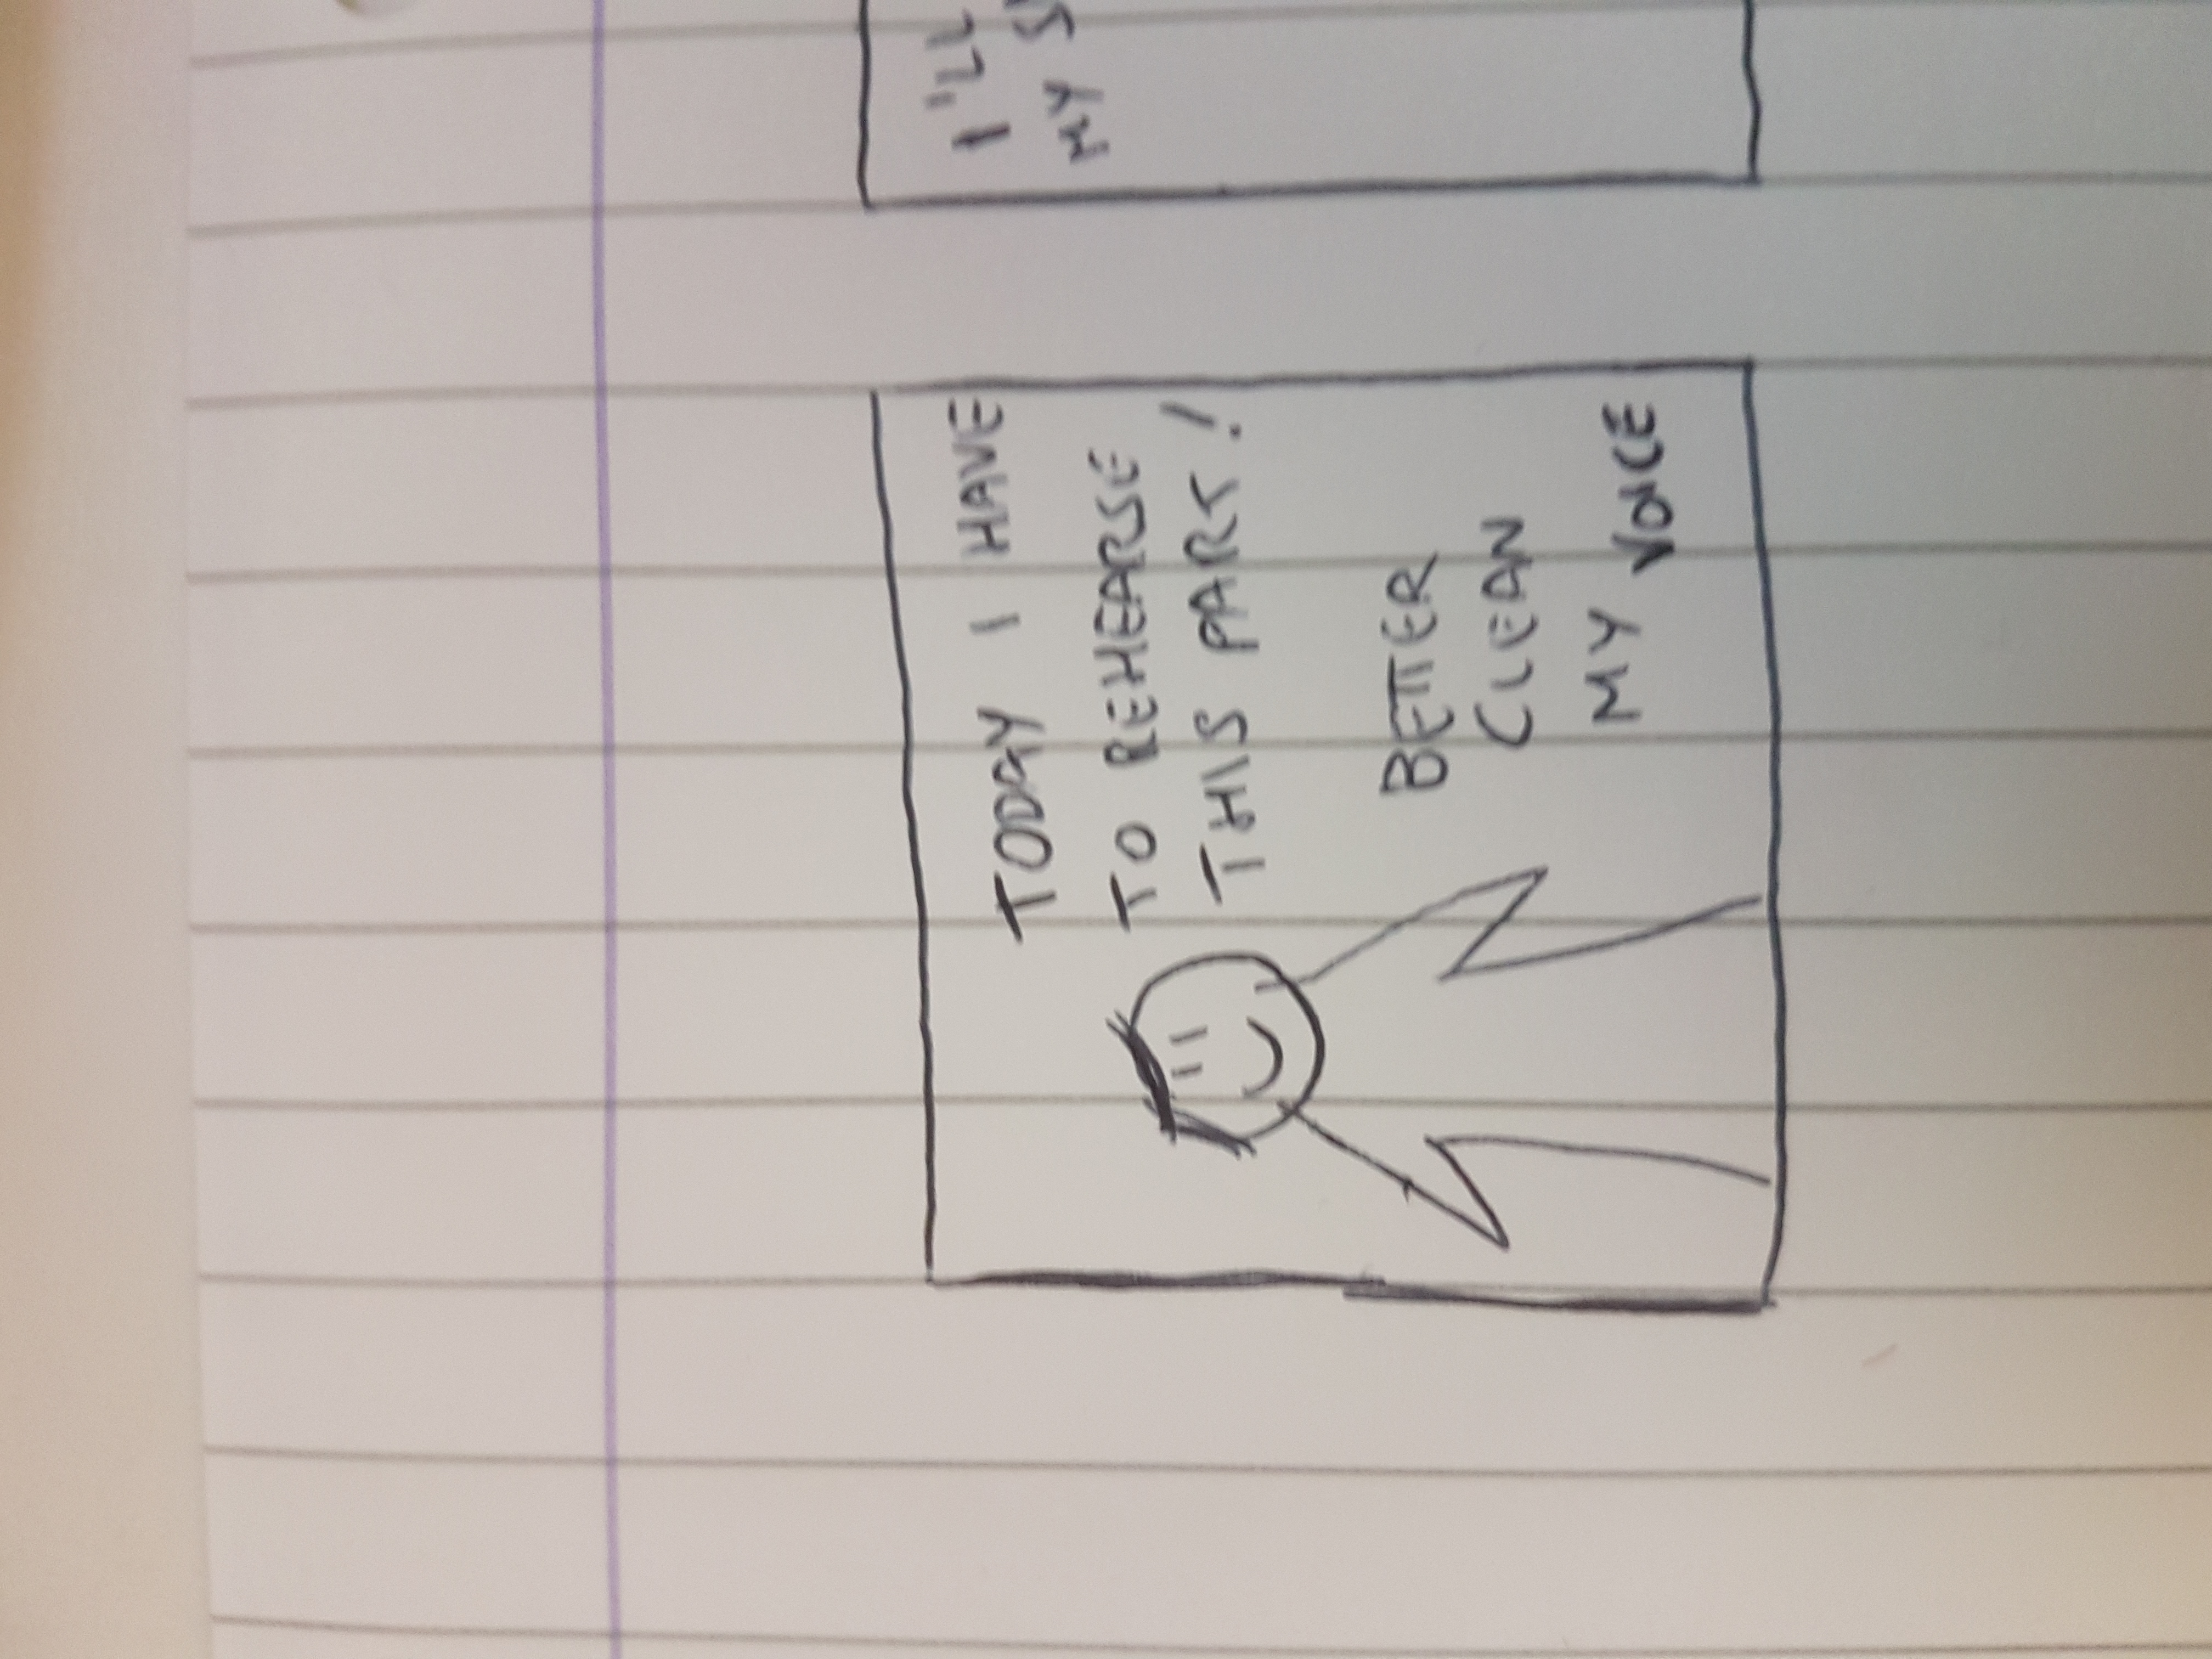 TODAY I HAVE
TO REHEARSE
THIS PART!
BETTER
CLEAN
MY VOICE
I'LL
MY